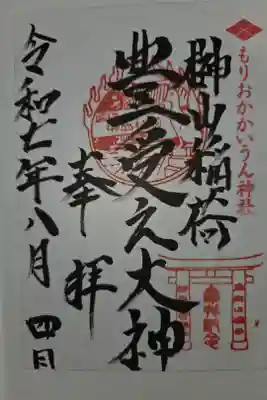 もりおかかいうん神社
榊山稲荷
豊受之大神
奉拝
令和七年八月四日